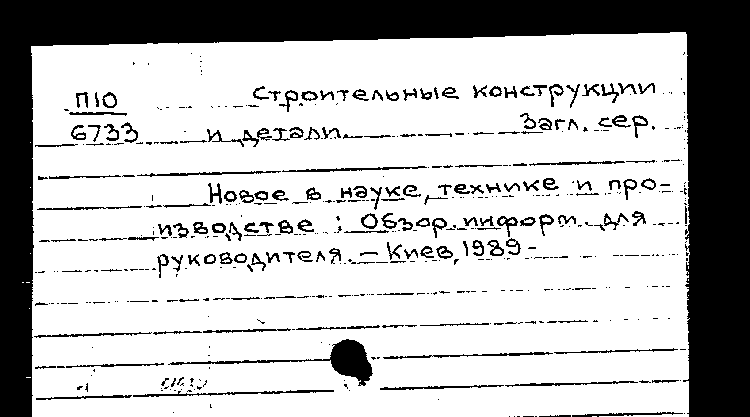 П10 Строительные конструкции
6733 и детали. Загл. сер.
Новое в науке, технике и про-
изводстве : Обзор. информ. для
руководителя. – Киев, 1989 -